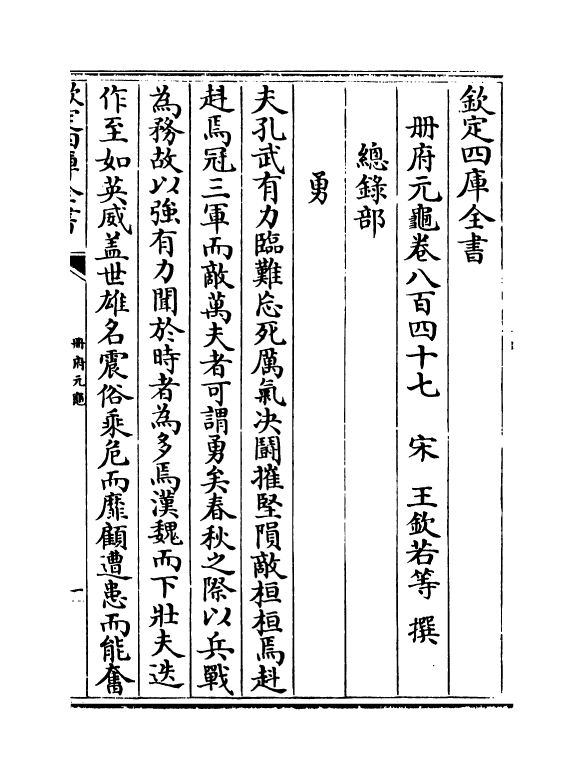 欽定四庫全書
册府元龜卷八百四十七　宋　王欽若等　撰
總錄部
勇
夫孔武有力臨難忘死厲氣决鬭摧堅隕敵桓桓焉赳
赳焉冠三軍而敵萬夫者可謂勇矣春秋之際以兵戰
為務故以強有力聞於時者為多焉漢魏而下壯夫迭
作至如英威盖世雄名震俗乘危而靡顧遭患而能奮
欽定四庫全書
册府元龜
一